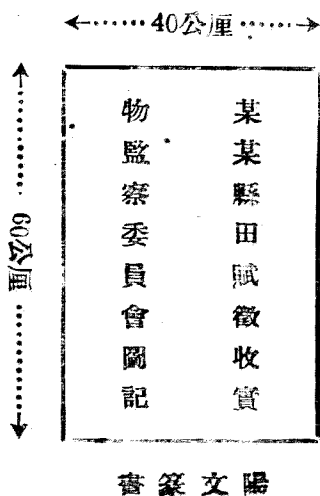 40公厘
60公厘
某某縣田賦徵收實
物監察委員會圖記
陽文篆書